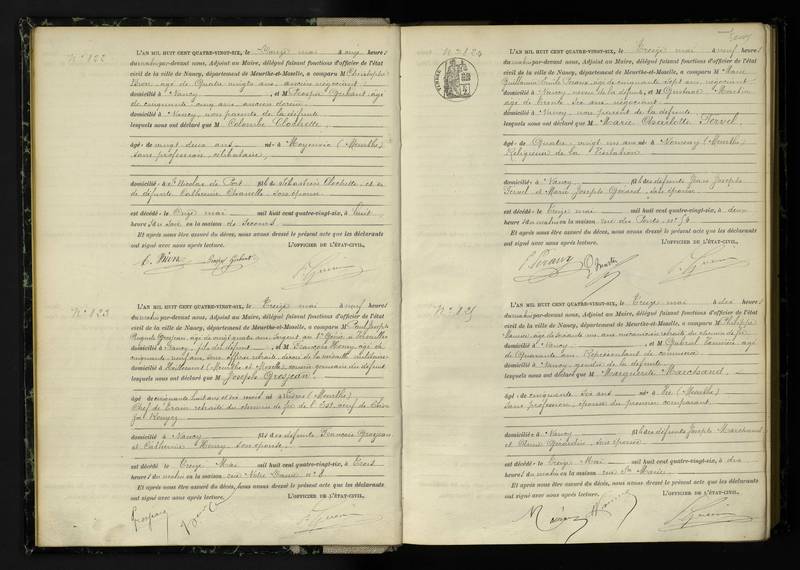 N° 822
L'AN MIL HUIT CENT QUATRE-VINGT-SIX, le Douze mai à onze heures
du matin par-devant nous, Adjoint au Maire, délégué faisant fonctions d'officier de l'état
civil de la ville de Nancy, département de Meurthe-et-Moselle, a comparu M Christophe
âgé de Quatre vingts ans, ancien négociant
domicilié à Nancy, et M Prosper âgé
de cinquante cinq ans, ancien
domicilié à Nancy, non parents de la défunte
lesquels nous ont déclaré que M Colombe Clochette
âgée de vingt deux ans né à Moyenvic (Meurthe)
sans profession, célibataire,
domicilié à St Nicolas de Port fille de Sébastien Clochette, et de
défunte Catherine sans épouse
est décédé le Onze mai mil huit cent quatre-vingt-six, à huit
heures du soir en la maison de secours
Et après nous être assuré du décès, nous avons dressé le présent acte que les déclarants
ont signé avec nous après lecture. L'OFFICIER DE L'ÉTAT-CIVIL,
N° 823
L'AN MIL HUIT CENT QUATRE-VINGT-SIX, le Treize mai à neuf heures
du matin par-devant nous, Adjoint au Maire, délégué faisant fonctions d'officier de l'état
civil de la ville de Nancy, département de Meurthe-et-Moselle, a comparu M Paul Joseph
âgé de vingt quatre ans, sergent au Génie, à Versailles
domicilié à Nancy, fils du défunt, et M François Henry, âgé de
cinquante neuf ans, officier retraité, décoré de la médaille militaire
domicilié à (Meurthe et Moselle), cousin germain du défunt
lesquels nous ont déclaré que M Joseph Grosjean
âgé de cinquante huit ans et dix mois né à (Meurthe)
Chef de train retraité du chemin de fer de l'Est, veuf de
domicilié à Nancy fils des défunts François Grosjean
et Catherine Henry, son épouse
est décédé le Treize Mai mil huit cent quatre-vingt-six, à Trois
heures du matin en la maison rue Notre Dame n° 8
Et après nous être assuré du décès, nous avons dressé le présent acte que les déclarants
ont signé avec nous après lecture. L'OFFICIER DE L'ÉTAT-CIVIL,
N° 824
L'AN MIL HUIT CENT QUATRE-VINGT-SIX, le Treize mai à neuf heures
du matin par-devant nous, Adjoint au Maire, délégué faisant fonctions d'officier de l'état
civil de la ville de Nancy, département de Meurthe-et-Moselle, a comparu M
Guillaume Émile âgé de cinquante sept ans, négociant
domicilié à Nancy, neveu de la défunte, et M Gustave Martin
âgé de trente six ans, négociant
domicilié à Nancy, non parent de la défunte
lesquels nous ont déclaré que M Marie
âgée de Quatre vingt un ans né à Nomeny (Meurthe)
Religieuse de la Visitation
domicilié à Nancy fille des défunts Jean Joseph
et Marie Josephe Gérard, son épouse
est décédé le Treize mai mil huit cent quatre-vingt-six, à deux
heures du matin en la maison rue des Ponts n°
Et après nous être assuré du décès, nous avons dressé le présent acte que les déclarants
ont signé avec nous après lecture. L'OFFICIER DE L'ÉTAT-CIVIL,
N° 825
L'AN MIL HUIT CENT QUATRE-VINGT-SIX, le Treize mai à dix heures
du matin par-devant nous, Adjoint au Maire, délégué faisant fonctions d'officier de l'état
civil de la ville de Nancy, département de Meurthe-et-Moselle, a comparu M Philippe
âgé de soixante un ans, mécanicien retraité du chemin de fer
domicilié à Nancy, et M Gabriel âgé
de Quarante ans, Représentant de commerce
domicilié à Nancy, gendre de la défunte
lesquels nous ont déclaré que M Marguerite Marchand
âgée de cinquante six ans né à Vic (Meurthe)
sans profession, épouse du premier comparant
domicilié à Nancy fille des défunts Joseph Marchand
et Gérardin, son épouse
est décédé le Treize Mai mil huit cent quatre-vingt-six, à dix
heures du matin en la maison rue Ste Marie
Et après nous être assuré du décès, nous avons dressé le présent acte que les déclarants
ont signé avec nous après lecture. L'OFFICIER DE L'ÉTAT-CIVIL,